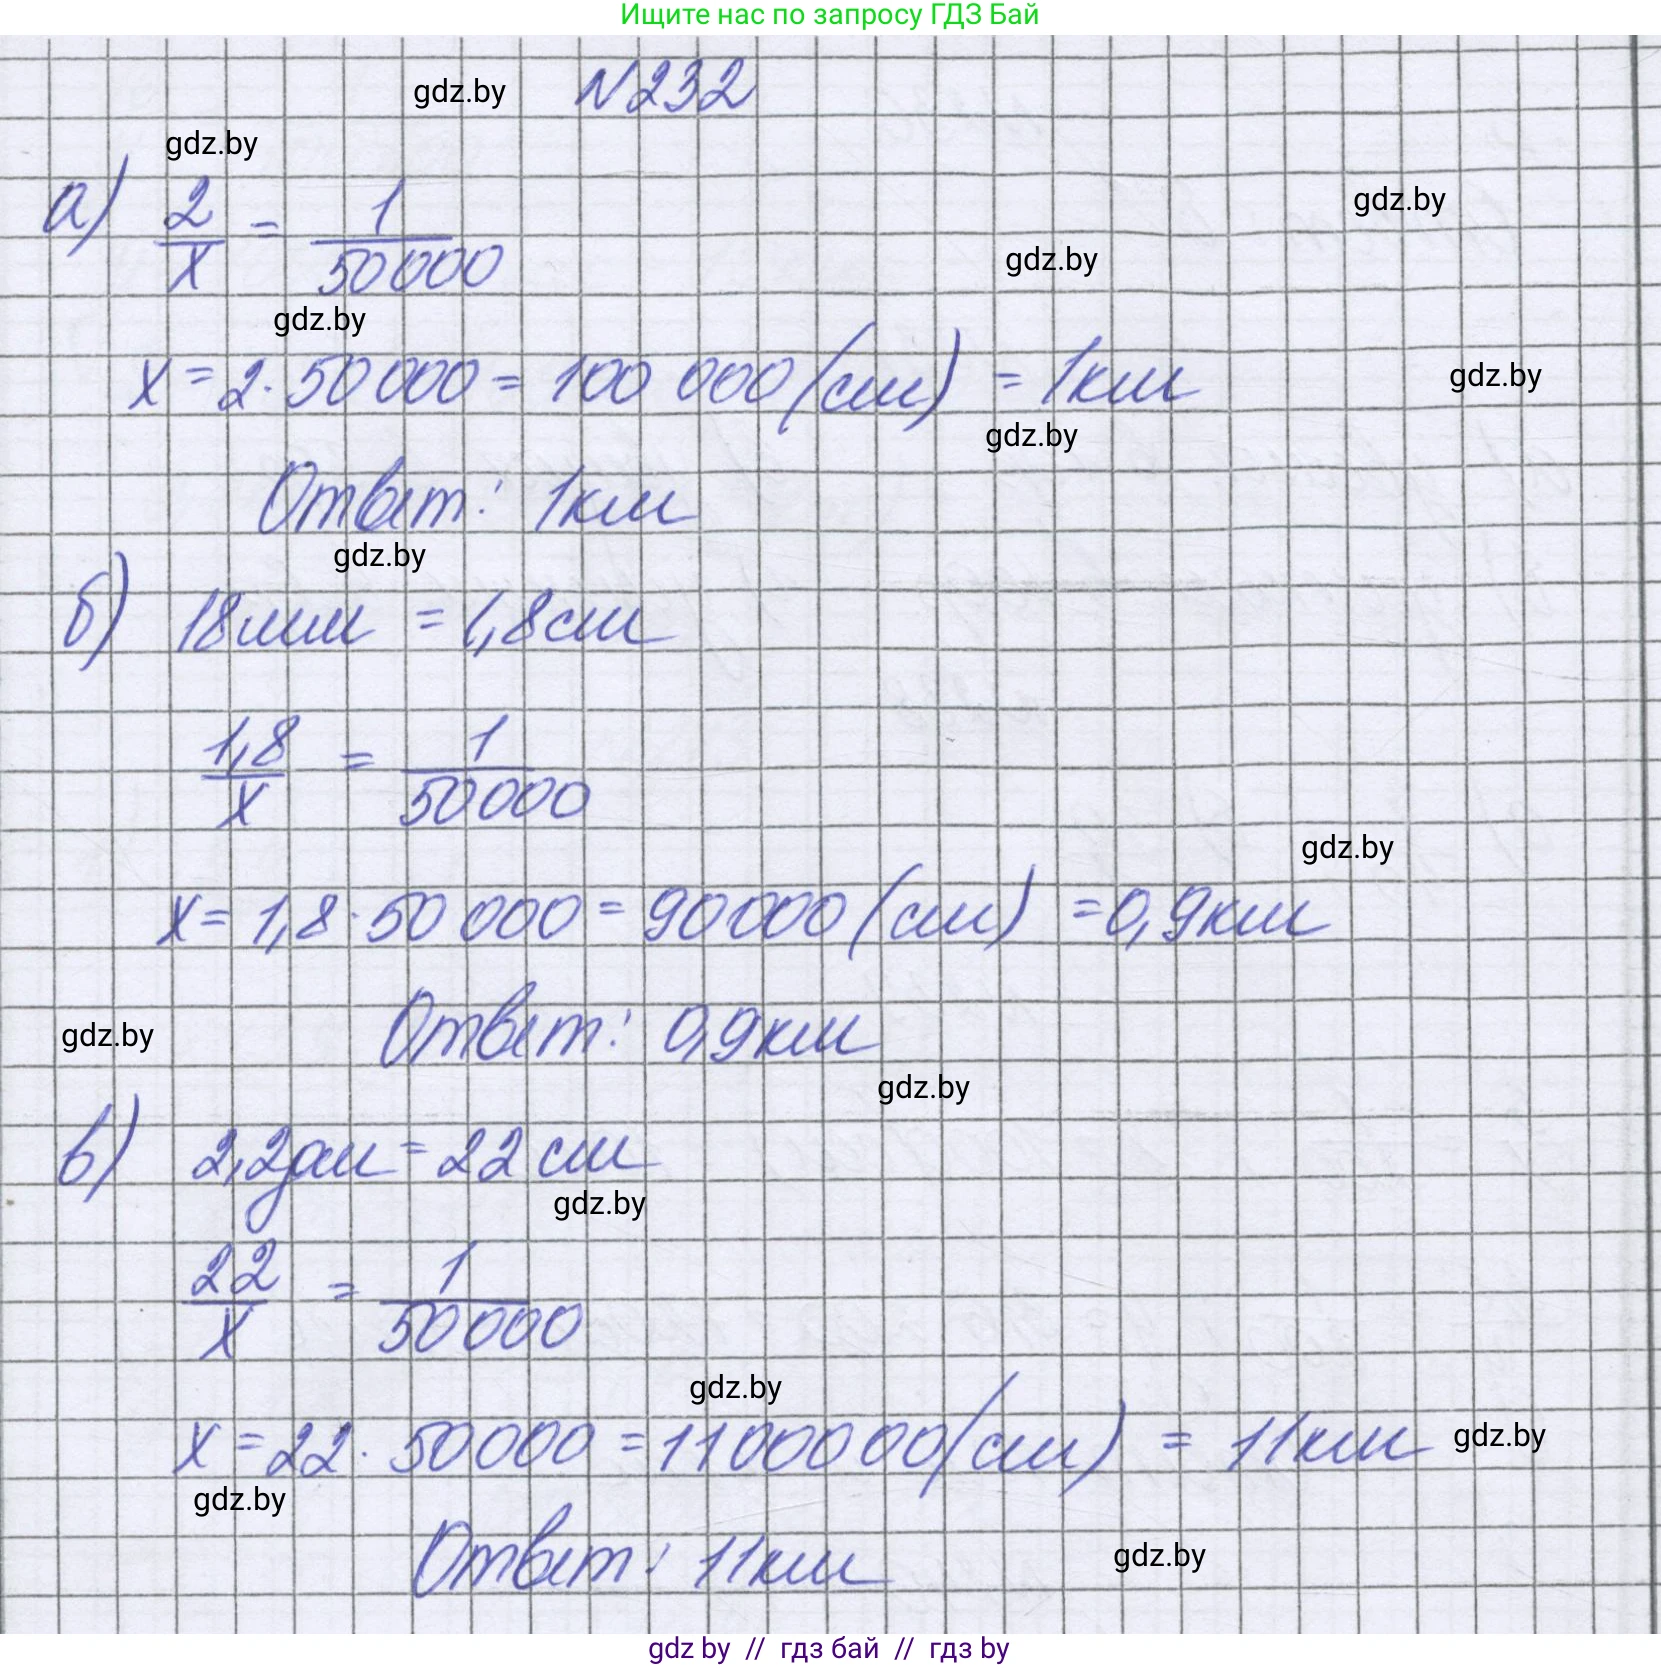 Ищите нас по запросу ГДЗ Бай
N232
gdz.by
gdz.by
а) 2/x = 1/50000
gdz.by
gdz.by
gdz.by
x = 2 · 50 000 = 100 000 (см) = 1км
gdz.by
gdz.by
Ответ: 1км
gdz.by
б) 18мм = 1,8см
1,8/x = 1/50000
gdz.by
x = 1,8 · 50 000 = 90000 (см) = 0,9км
Ответ: 0,9км
gdz.by
gdz.by
в) 2,2дм = 22 см
gdz.by
22/x = 1/50000
gdz.by
x = 22 · 50000 = 1100000 (см) = 11км
gdz.by
gdz.by
Ответ: 11км
gdz.by
gdz by // гдз бай // гдз by